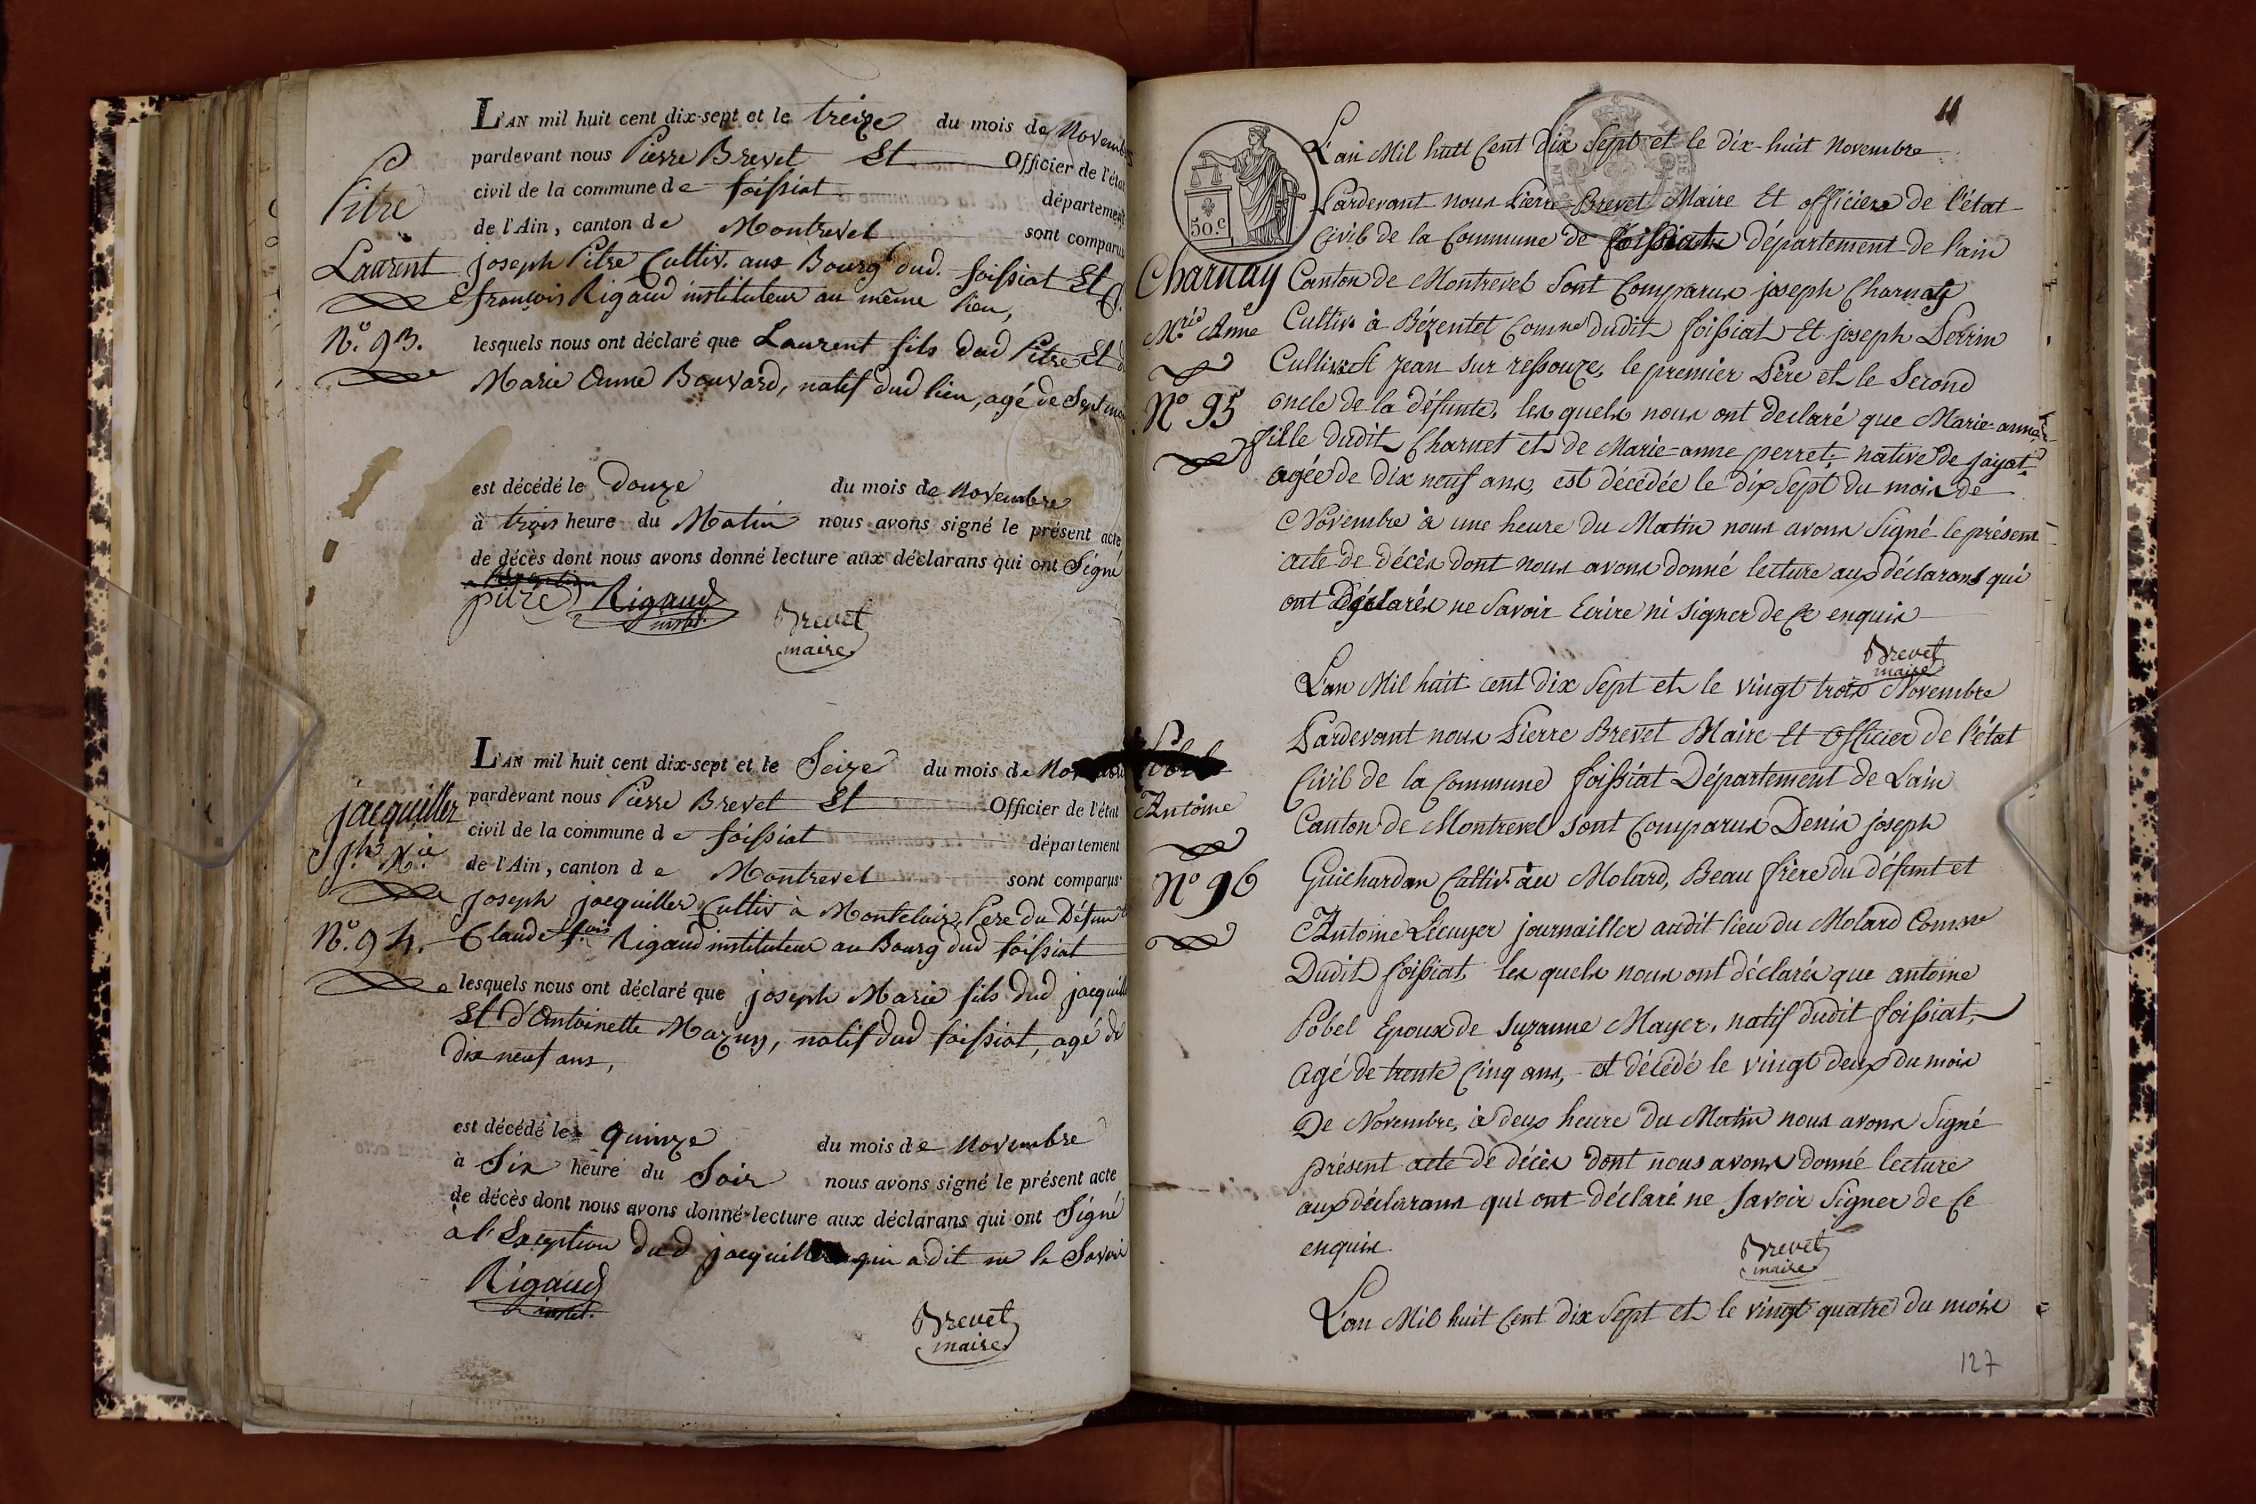 L'AN mil huit cent dix-sept et le treize du mois de Novembre
pardevant nous Pierre Brevet Et Officier de l'état
civil de la commune de foissiat département
de l'Ain, canton de Montrevel sont comparus
Pitre
Laurent
N.º 93.
joseph Pitre Cultiv. aux Bourg dud. foissiat Et
françois Rigaud instituteur au même lieu,
lesquels nous ont déclaré que Laurent fils dud Pitre Et d
Marie Anne Bouvard, natif dud lieu, agé de Sept
est décédé le Douze du mois de Novembre
à trois heure du Matin nous avons signé le présent acte
de décès dont nous avons donné lecture aux déclarans qui ont Signé
pitre Rigaud
instit.
Brevet
maire
L'AN mil huit cent dix-sept et le Seize du mois de
pardevant nous Pierre Brevet Et Officier de l'état
civil de la commune de foissiat département
de l'Ain, canton de Montrevel sont comparus
jacquiller
jph. Mie
N.º 94.
joseph jacquiller Cultiv à Montclair, Pere du Défunt
Claude f.ois Rigaud instituteur au Bourg dud foissiat
lesquels nous ont déclaré que joseph Marie fils dud jacquill
Et d'Antoinette Mazuy, natif dud foissiat, agé de
dix neuf ans,
est décédé le quinze du mois de Novembre
à Six heure du Soir nous avons signé le présent acte
de décès dont nous avons donné lecture aux déclarans qui ont Signé
à l'Exception dud jacquiller qui a dit ne le Savoir
Rigaud
instit.
Brevet
maire
11
50.c
L'an Mil huit Cent Dix Sept et le dix-huit Novembre
Pardevant nous Pierre Brevet Maire Et officier de l'état
Civil de la Commune de foissiat département de l'ain
Charnay
M.rie Anne
Nº 95
Canton de Montrevel Sont Comparus joseph Charnay
Cultiv. à Bézentet Comne dudit foissiat Et joseph Perrin
Cultiv. St jean sur ressouze, le premier Père et le Second
oncle de la défunte, les quels nous ont declaré que Marie-anne
fille dudit Charnet et de Marie-anne perret, native de jayat
agée de Dix neuf ans, est décédée le dix Sept du mois de
Novembre à une heure du Matin nous avons Signé le présent
acte de décès dont nous avons donné lecture aux déclarans qui
ont Déclarés ne Savoir Ecrire ni Signer de Ce enquis
Brevet
maire
L'an Mil huit cent Dix Sept et le vingt trois Novembre
Pardevant nous Pierre Brevet Maire Et Officier de l'état
Civil de la Commune foissiat Département de Lain
Pobel
Antoine
Nº 96
Canton de Montrevel sont Comparus Denis joseph
Guichardan Cultiv. au Molard, Beau frère du défunt et
Antoine Lécuyer journailler audit lieu du Molard Comne
Dudit foissiat, les quels nous ont déclarés que antoine
Pobel Epoux de Suzanne Mayer, natif dudit foissiat,
agé de trente Cinq ans, est décédé le vingt deux du mois
De Novembre, à deux heure du Matin nous avons Signé
présent acte de décès dont nous avons donné lecture
aux déclarans qui ont déclaré ne Savoir Signer de Ce
enquis.
Brevet
maire
L'an Mil huit Cent Dix Sept et le vingt quatre du mois
127